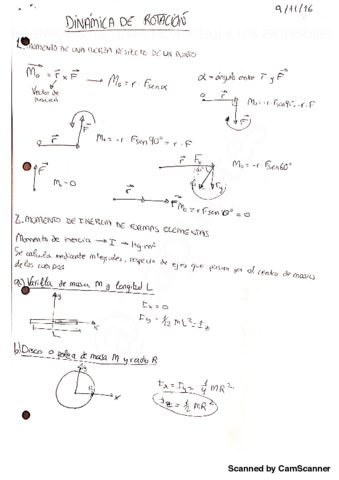 9/11/16
DINÁMICA DE ROTACIÓN
1. MOMENTO DE UNA FUERZA RESPECTO DE UN PUNTO
M₀ = r x F → M₀ = r · F senα α = ángulo entre r y F
Vector de posición
M₀ = -r · F sen 90° = -r · F
M₀ = r · F sen 90° = r · F
M₀ = -r · F sen 60°
M₀ = 0
M₀ = r F sen 0° = 0
2. MOMENTO DE INERCIA DE FORMAS ELEMENTALES
Momento de inercia → I → kg·m²
Se calcula mediante integrales, respecto de ejes que pasan por el centro de masas
de los cuerpos
a) Varilla de masa M y longitud L
y
x
L
Ix = 0
Iy = 1/12 ML² = Iz
b) Disco o polea de masa M y radio R
y
R
x
Ix = Iy = 1/4 MR²
Iz = 1/2 MR²
Scanned by CamScanner